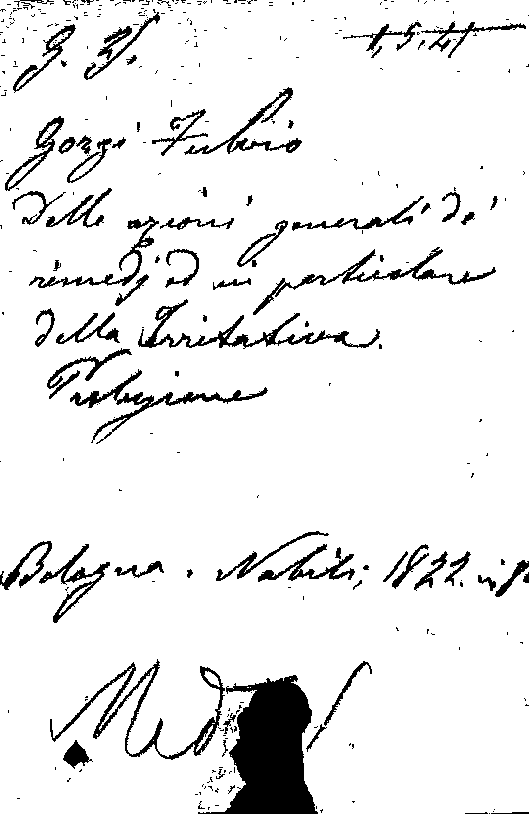 G. F.
1,5,41
Gozzi Fulvio
Delle azioni generali de'
rimedj ed in particolare
della Irritativa.
Prolusione
Bologna. Nobili; 1822. in 8°
Med